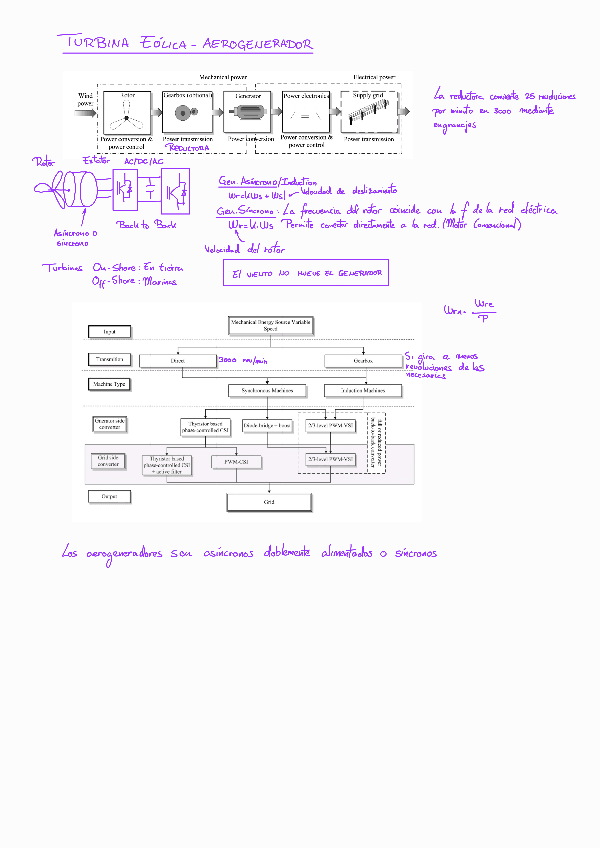 TURBINA EÓLICA - AEROGENERADOR
Mechanical power
Electrical power
Wind power
Rotor
Gearbox (optional)
Generator
Power electronics
Supply grid
Power conversion & power control
Power transmission
Power conversion
Power conversion & power control
Power transmission
REDUCTORA
La reductora convierte 25 revoluciones
por minuto en 3000 mediante
engranajes
Rotor
Estator
AC/DC/AC
ASÍNCRONO O
SÍNCRONO
Back to Back
Gen. Asíncrono/Induction
Velocidad de deslizamiento
Gen. Síncrono: La frecuencia del rotor coincide con la f de la red eléctrica
Wr=K·Ws Permite conectar directamente a la red. (Motor Convencional)
Velocidad del rotor
Turbines On-Shore: En tierra
Off-Shore: Marinas
EL VIENTO NO MUEVE EL GENERADOR
Input
Mechanical Energy Source Variable
Speed
Transmition
Direct
3000 rev/min
Gearbox
Si gira a menos
revoluciones de las
necesarias
Machine Type
Synchronous Machines
Induction Machines
Generator side
converter
Thyristor based
phase-controlled CSI
Diode bridge + boost
2/3-level PWM-VSI
Grid side
converter
Thyristor based
phase-controlled CSI
+ active filter
PWM-CSI
2/3-level PWM-VSI
Output
Grid
Los aerogeneradores son asíncronos doblemente alimentados o síncronos